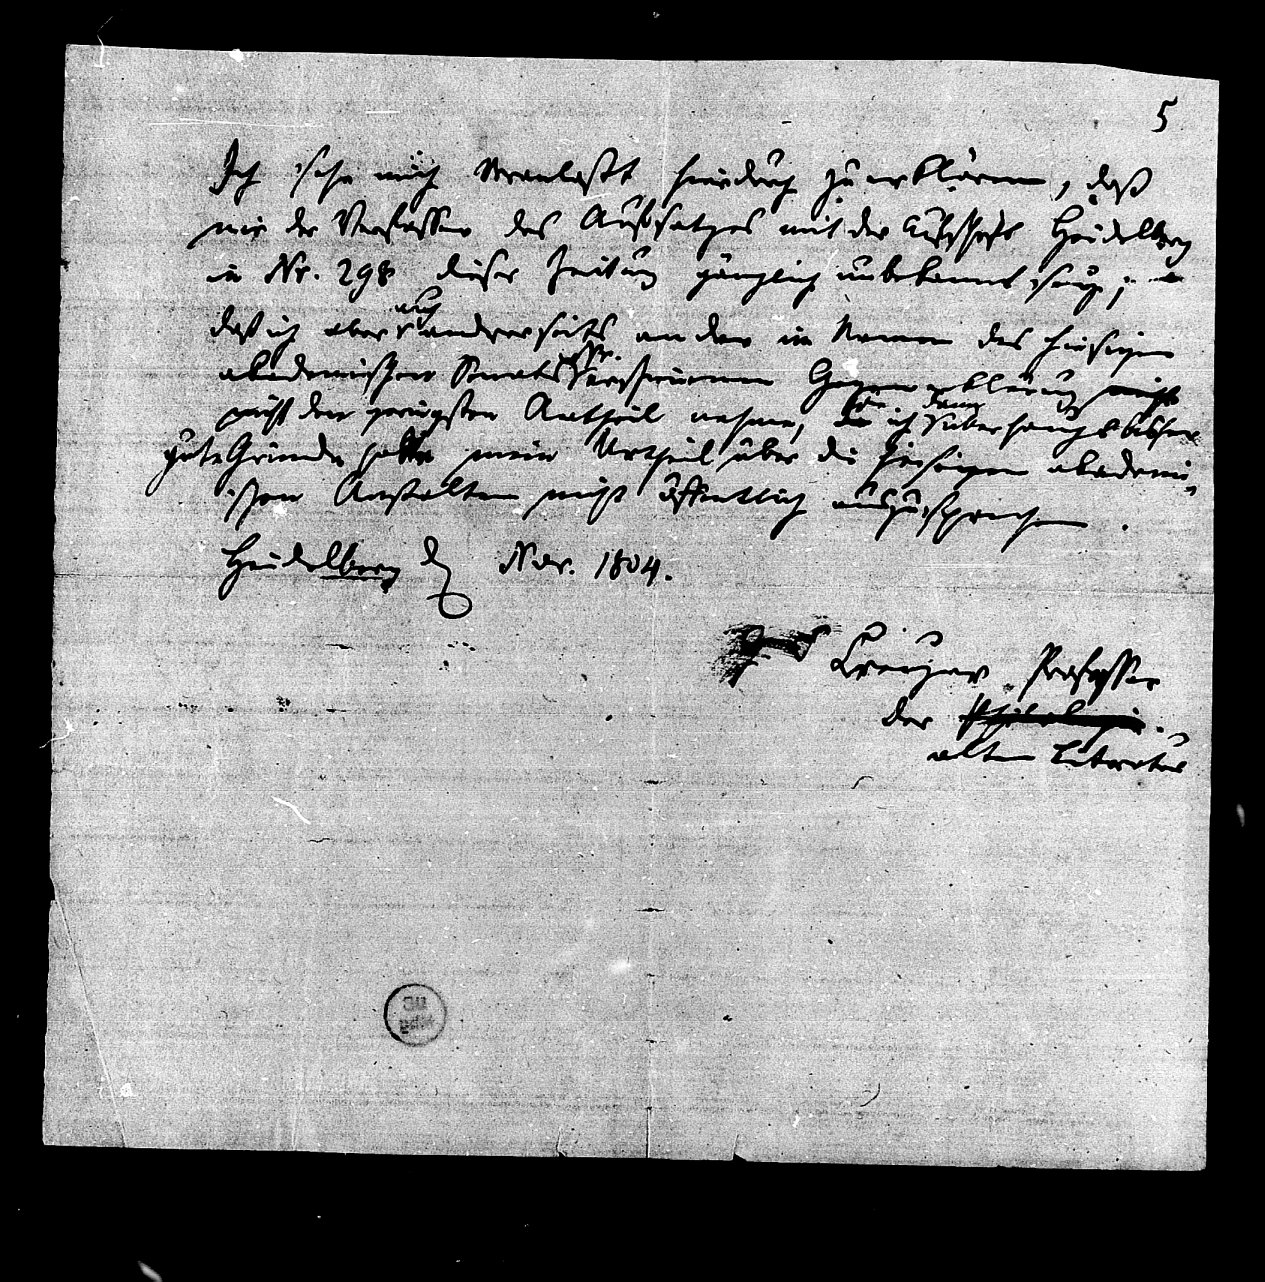 5
Ich sehe mich veranlaßt hierdurch zu erklären, daß
mir der Verfasser des Aufsatzes mit der Aufschrift Heidelberg
in Nr. 298 dieser Zeitung gänzlich unbekannt sey;
auch
daß ich aber andrerseits an der im Namen des hiesigen
akademischen Senats erschienenen Gegenerklärung nicht
nicht den geringsten Antheil nehme, ich überhaupt
gute Gründe habe mein Urtheil über die hiesigen akademi-
schen Anstalten nicht öffentlich auszusprechen.
Heidelberg d Nov. 1804.
Creuzer Professor
der Philologie.
alten Literatur